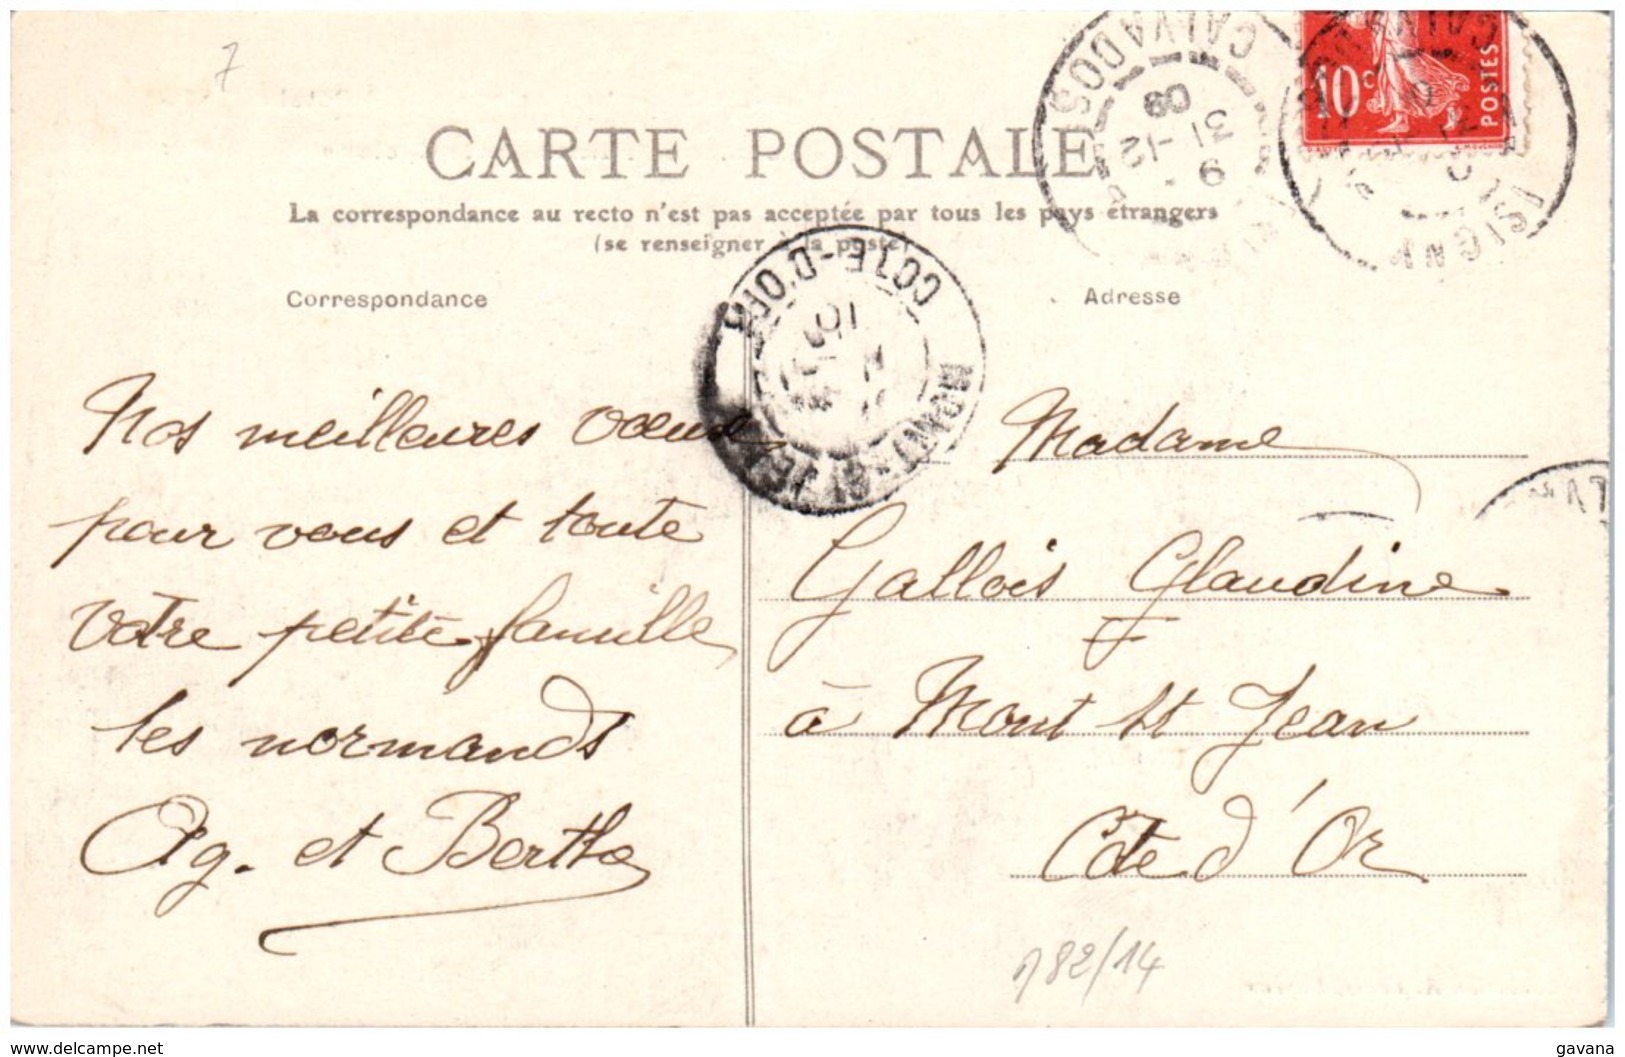 7
CALVADOS
9
31-12
09
10c
POSTES
ISIGNY
CARTE POSTALE
La correspondance au recto n'est pas acceptée par tous les pays étrangers
(se renseigner à la poste)
COTE-D'OR
10
MONT-ST-JEAN
Correspondance
Adresse
Nos meilleures voeux
pour vous et toute
votre petite famille
les normands
Aug. et Berthe
Madame
Gallois Glaudine
à Mont St Jean
Côte d'Or
982/14
www.delcampe.net
gavana